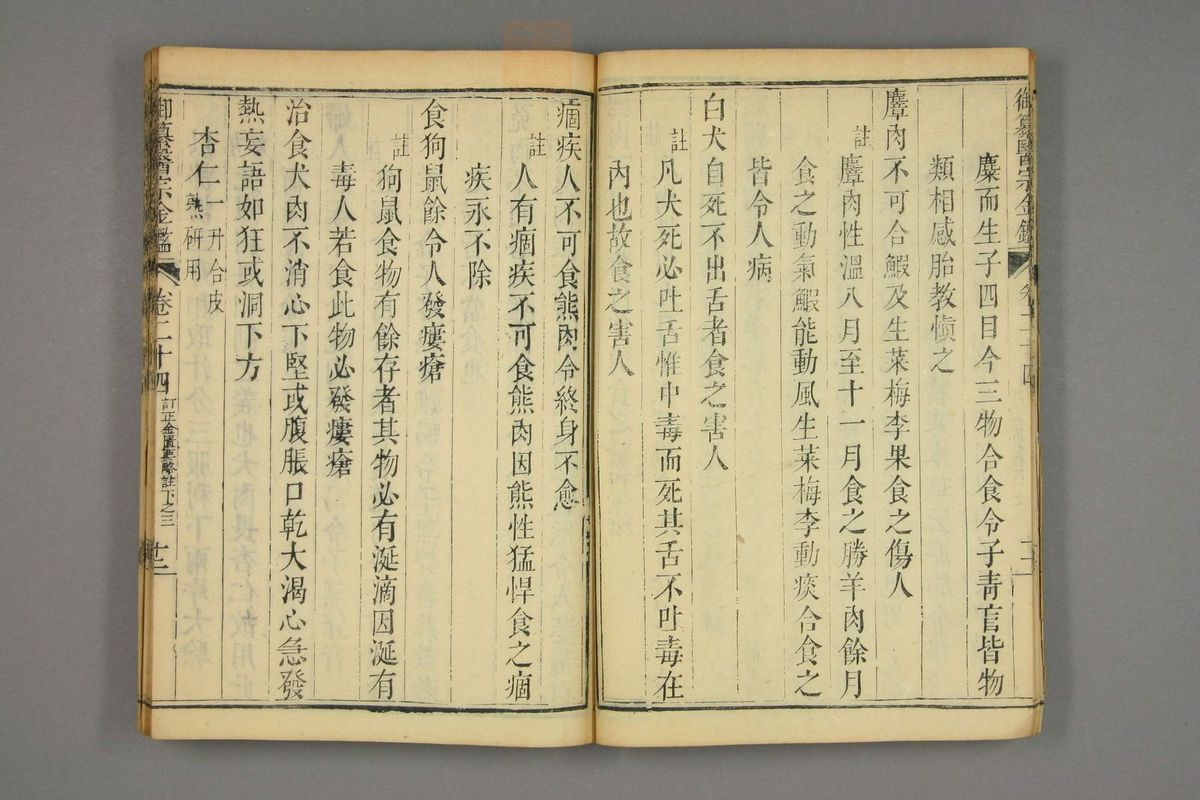 麋而生子四目今三物合食令子青盲皆物
類相感胎教愼之
麞肉不可合鰕及生菜梅李果食之傷人
註
麞肉性溫八月至十一月食之勝羊肉餘月
食之動氣鰕能動風生菜梅李動痰合食之
皆令人病
白犬自死不出舌者食之害人
註
凡犬死必吐舌惟中毒而死其舌不吐毒在
內也故食之害人
痼疾人不可食熊肉令終身不愈
註
人有痼疾不可食熊肉因熊性猛悍食之痼
疾永不除
食狗鼠餘令人發瘻瘡
註
狗鼠食物有餘存者其物必有涎滴因涎有
毒人若食此物必發瘻瘡
治食犬肉不消心下堅或腹脹口乾大渴心急發
熱妄語如狂或洞下方
杏仁一升合皮熟研用
御纂醫宗金鑑 卷二十四 訂正金匱要略註下之三 十二